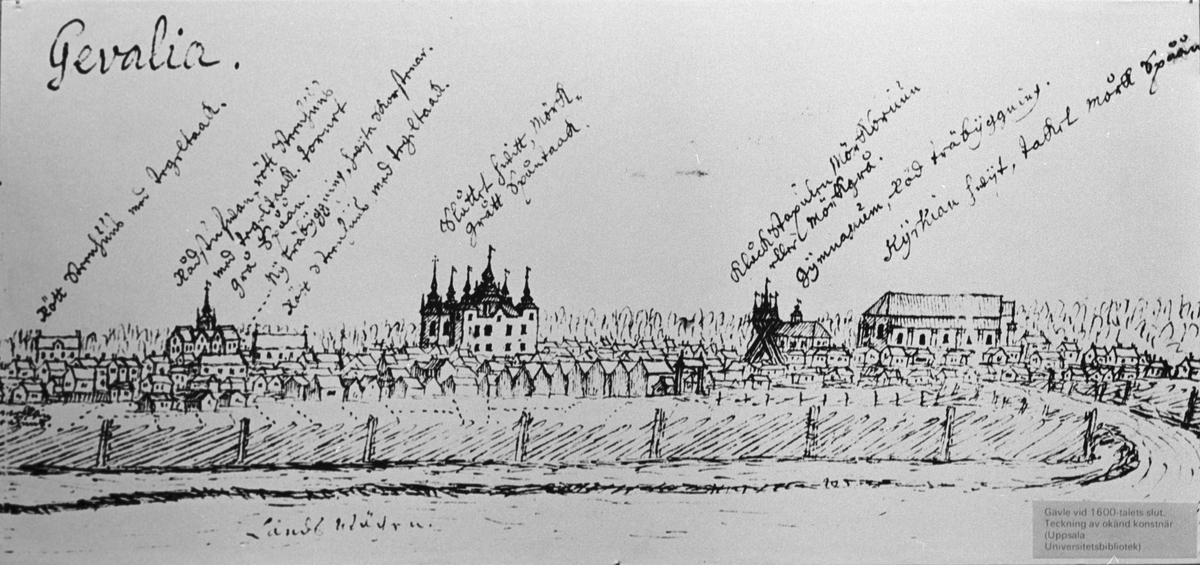 Gevalia.
Rött Steenhuus med tegeltaack.
Rådstufwan, rött Steenhuus
med tegeltack, tornet
grå Spåån.
Ny träbyggning, hwita Skorstenar.
Röt Steenhuus med tegeltaack.
Slåttet hwitt, Mörck-
grått Spåntaack.
Kluckstapulen Mörckbruun
eller Mörckgrå.
Gÿmnasium, Röd träbÿggning.
Kÿrkian hwijt, taket mörck Spåån
Gävle vid 1600-talets slut.
Teckning av okänd konstnär
(Uppsala
Universitetsbibliotek)